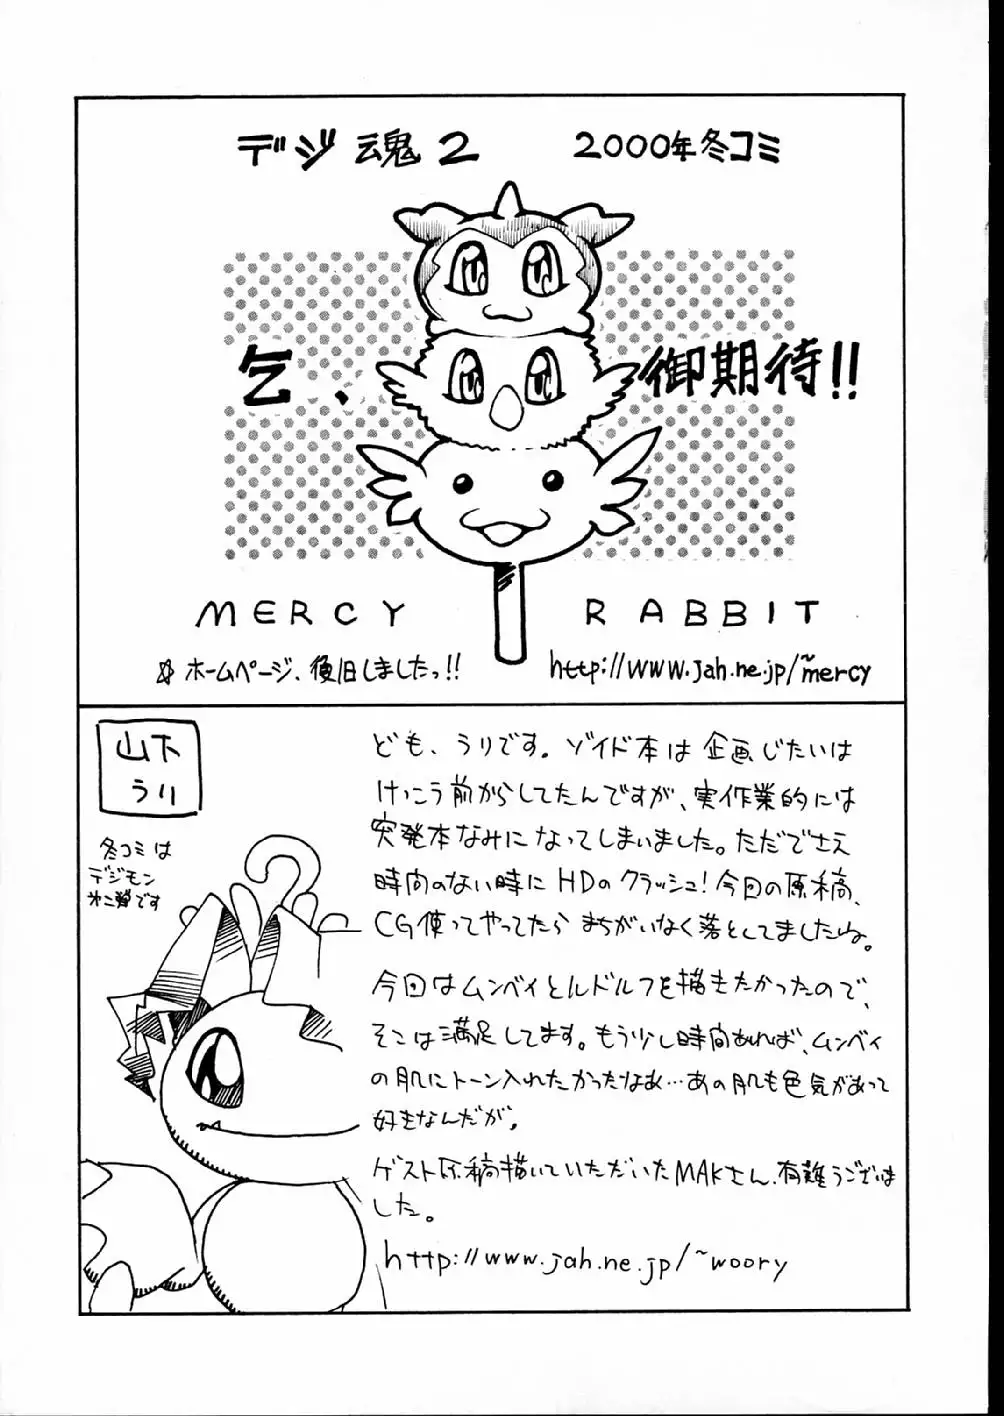 デジ魂2 2000年冬コミ
乞、御期待!!
MERCY RABBIT
☆ホームページ、復旧しましたっ!!
http://www.jah.ne.jp/~mercy
山下
うり
冬コミは
デジモン
オニ弾です
ども、うりです。ゾイド本は企画じたいは
けっこう前からしてたんですが、実作業的には
突発本なみになってしまいました。ただでさえ
時間のない時にHDのクラッシュ!今回の原稿、
CG使ってやってたらまちがいなく落としてましたね。
今回はムンベイとルドルフを描きたかったので、
そこは満足してます。もう少し時間あれば、ムンベイ
の肌にトーン入れたかったなあ…あの肌も色気があって
好きなんだが。
ゲスト原稿描いていただいたMAKさん、有難うございま
した。
http://www.jah.ne.jp/~woory